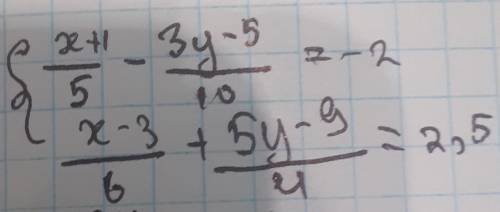 { x+1/5 - 3y-5/10 = -2
x-3/6 + 5y-9/4 = 2,5